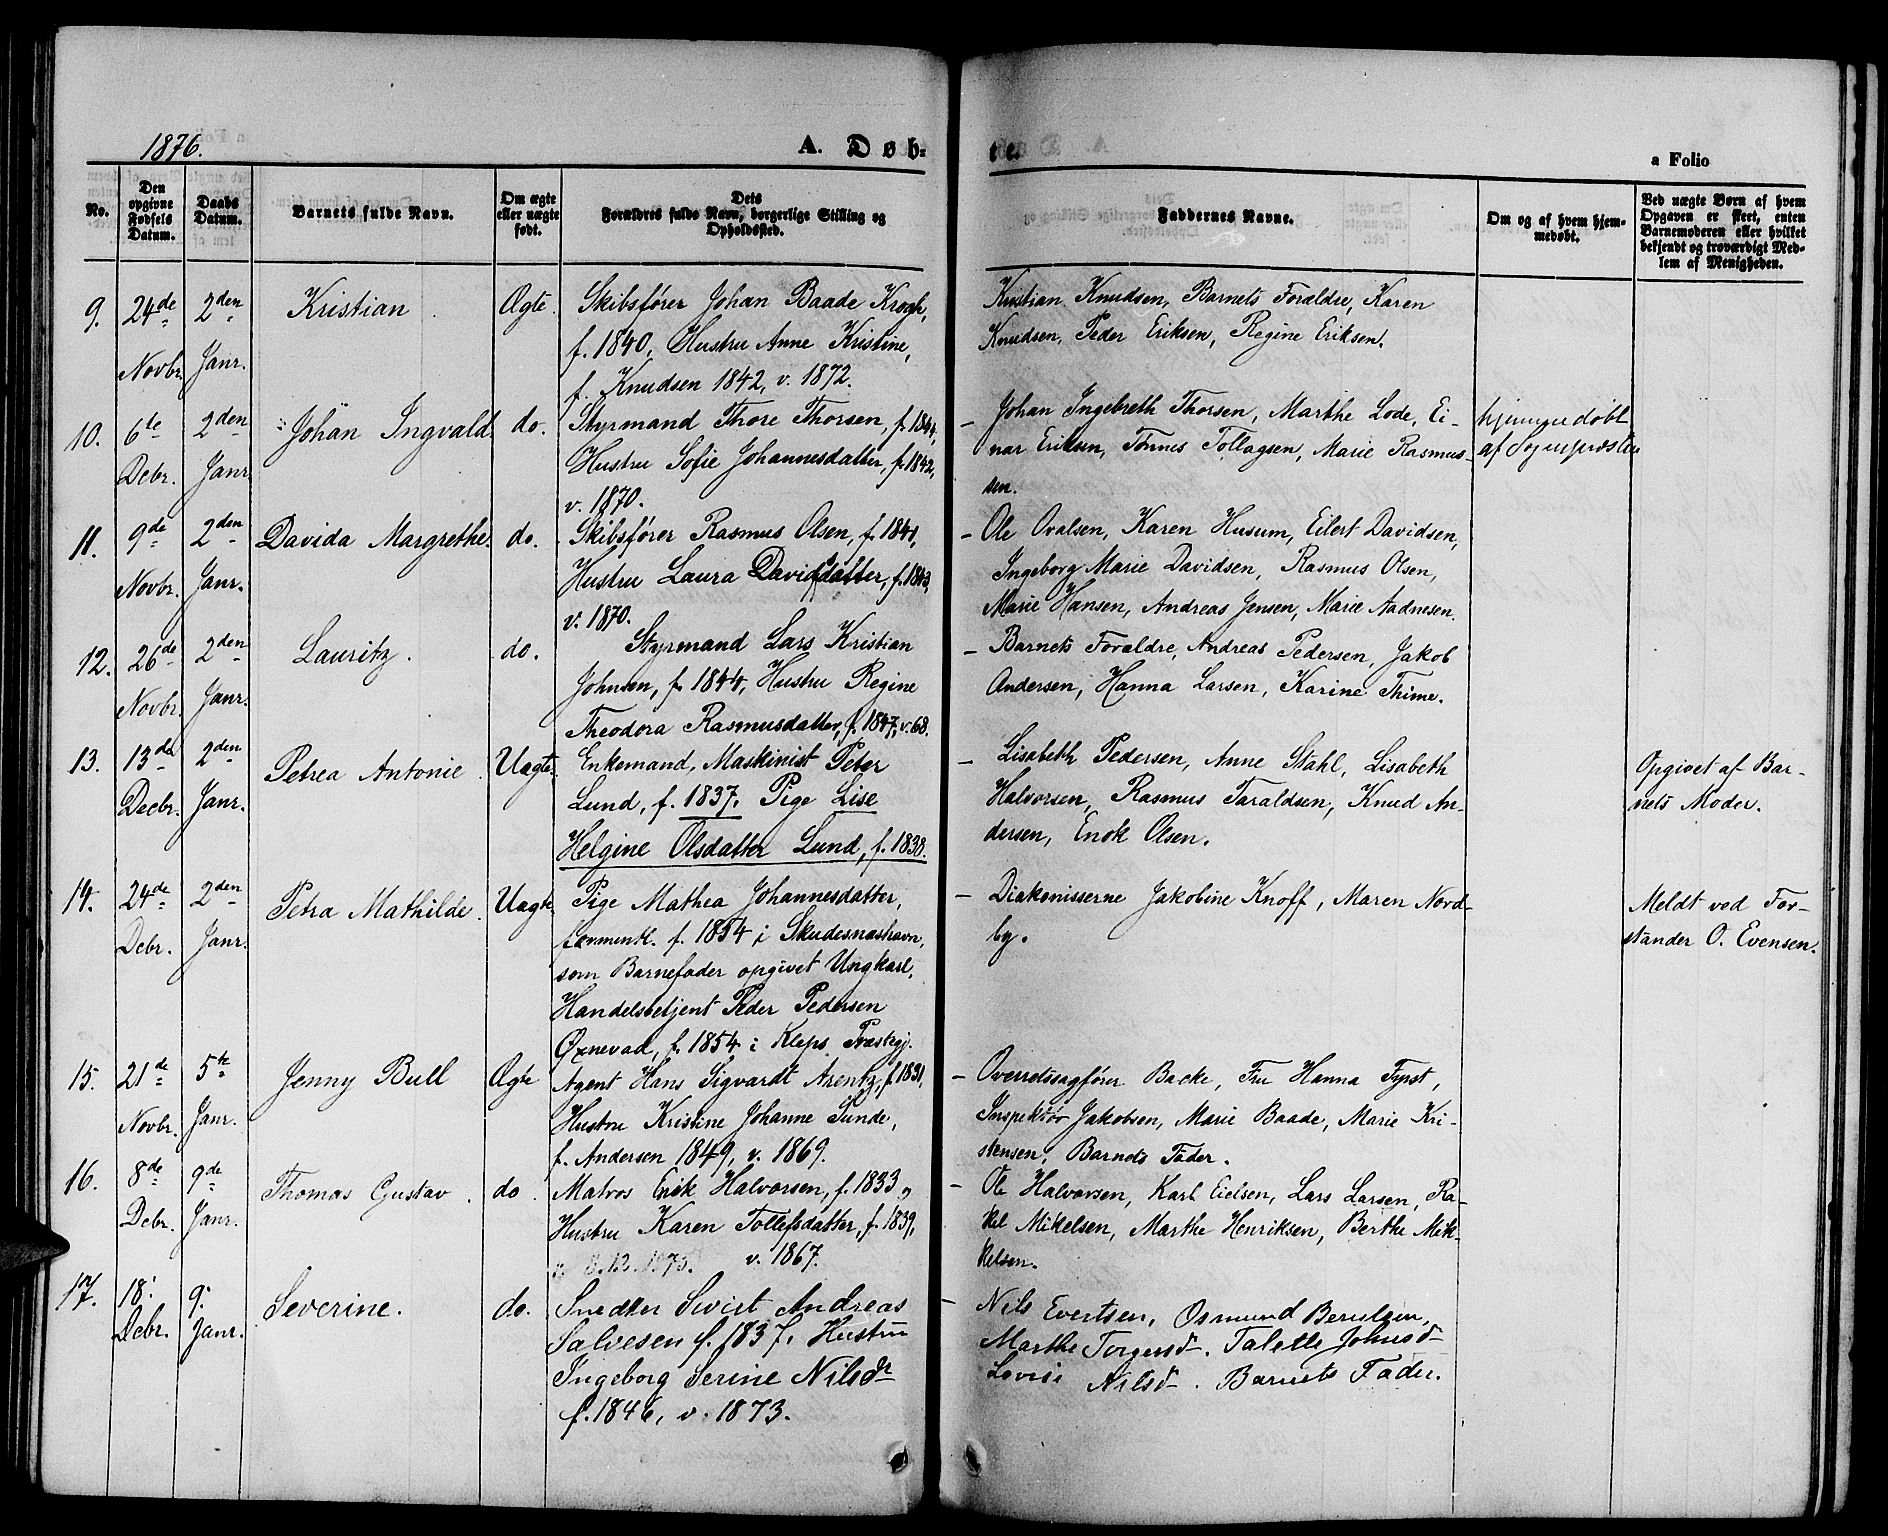 1876.
A. Døb-
te.
a Folio
No.
Den opgivne Fødsels Datum.
Daabs Datum.
Barnets fulde Navn.
Om ægte eller uægte født.
Dets Forældres fulde Navn, borgerlige Stilling og Opholdssted.
Faddernes Navne.
Om og af hvem hjemmedøbt.
Ved uægte Børn af hvem Opgaven er skeet, enten Barnemoderen eller hvilket bekjendt og troværdigt Medlem af Menigheden.
9. 24de Novbr. 2den Janr. Kristian Ægte. Skibsfører Johan Baade Krogh,
f. 1840, Hustru Anne Kristine,
f. Knudsen 1842, v. 1872.
Kristian Knudsen, Barnets Forældre, Karen
Knudsen, Peder Eriksen, Regine Eriksen.
10. 6te Debr. 2den Janr. Johan Ingvald do. Styrmand Thore Thorsen, f. 1844,
Hustru Sofie Johannesdatter, f. 1842,
v. 1870.
- Johan Ingebreth Thorsen, Marthe Lode, Ei-
nar Eriksen, Tønnes Tollagsen, Marie Rasmus-
sen.
hjemmedøbt
af Sognepræsten
11. 9de Novbr. 2den Janr. Davida Margrethe. do. Skibsfører Rasmus Olsen, f. 1841,
Hustru Laura Davidsdatter, f. 1843,
v. 1870.
- Ole Ovalsen, Karen Husum, Eilert Davidsen,
Ingeborg Marie Davidsen, Rasmus Olsen,
Marie Hansen, Andreas Jensen, Marie Aadnesen.
12. 26de Novbr. 2den Janr. Lauritz. do. Styrmand Lars Kristian
Johnsen, f. 1844, Hustru Regine
Theodora Rasmusdatter, f. 1847, v. 68.
- Barnets Forældre, Andreas Pedersen, Jakob
Andersen, Hanna Larsen, Karine Thime.
13. 13de Decbr. 2den Janr. Petrea Antonie. Uægte. Enkemand, Maskinist Peter
Lund, f. 1837. Pige Lise
Helgine Olsdatter Lund, f. 1838.
- Lisabeth Pedersen, Anne Stahl, Lisabeth
Halvorsen, Rasmus Taraldsen, Knud An-
dersen, Enok Olsen.
Opgivet af Bar-
nets Moder.
14. 24de Debr. 2den Janr. Petra Mathilde. Uægte. Pige Mathea Johannesdatter,
f. 1854 i Skudesnæshavn,
som Barnefader opgivet Ungkarl,
Handelsbetjent Peder Pedersen
Øxnevad, f. 1854 i Kleps Præstegj.
- Diakonisserne Jakobine Knoff, Maren Nord-
by.
Meldt ved For-
stander O. Evensen.
15. 21de Novbr. 5te Janr. Jenny Bull Ægte Agent Hans Sigvardt Arentz, f. 1831,
Hustru Kristine Johanne Sunde,
f. Andersen 1849, v. 1869.
- Overretssagfører Backe, Fru Hanna Fyrst,
Inspektør Jakobsen, Marie Baade, Marie Kri-
stensen, Barnets Fader.
16. 8de Debr. 9de Janr. Thomas Gustav. do. Matros Erik Halvorsen, f. 1833,
Hustru Karen Tollefsdatter, f. 1839,
8.12.1875. v. 1867.
- Ole Halvorsen, Karl Eielsen, Lars Larsen, Ra-
kel Mikelsen, Marthe Henriksen, Berthe Mik-
kelsen.
17. 18. Debr. 9. Janr. Severine. do. Snedker Sivert Andreas
Salvesen f. 1837. Hustru
Ingeborg Serine Nilsdr
f. 1846, v. 1873.
- Nils Evertsen, Osmund Berulsen,
Marthe Torgersd. Talette Johnsd
Lovise Nilsd. Barnets Fader.